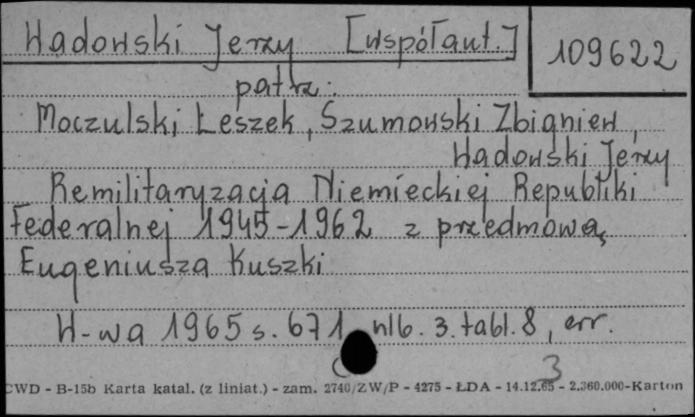 Wadowski Jerzy [współaut.]
109622
patrz:
Moczulski Leszek, Szumowski Zbigniew,
Wadowski Jerzy
Remilitaryzacja Niemieckiej Republiki
Federalnej 1945-1962 z przedmową
Eugeniusza Kuszki
W-wa 1965 s. 671, nlb. 3. tabl. 8, err.
3
CWD - B-15b Karta katal. (z liniat.) - zam. 2740/ZW/P - 4275 - ŁDA - 14.12.65 - 2.360.000-Karton